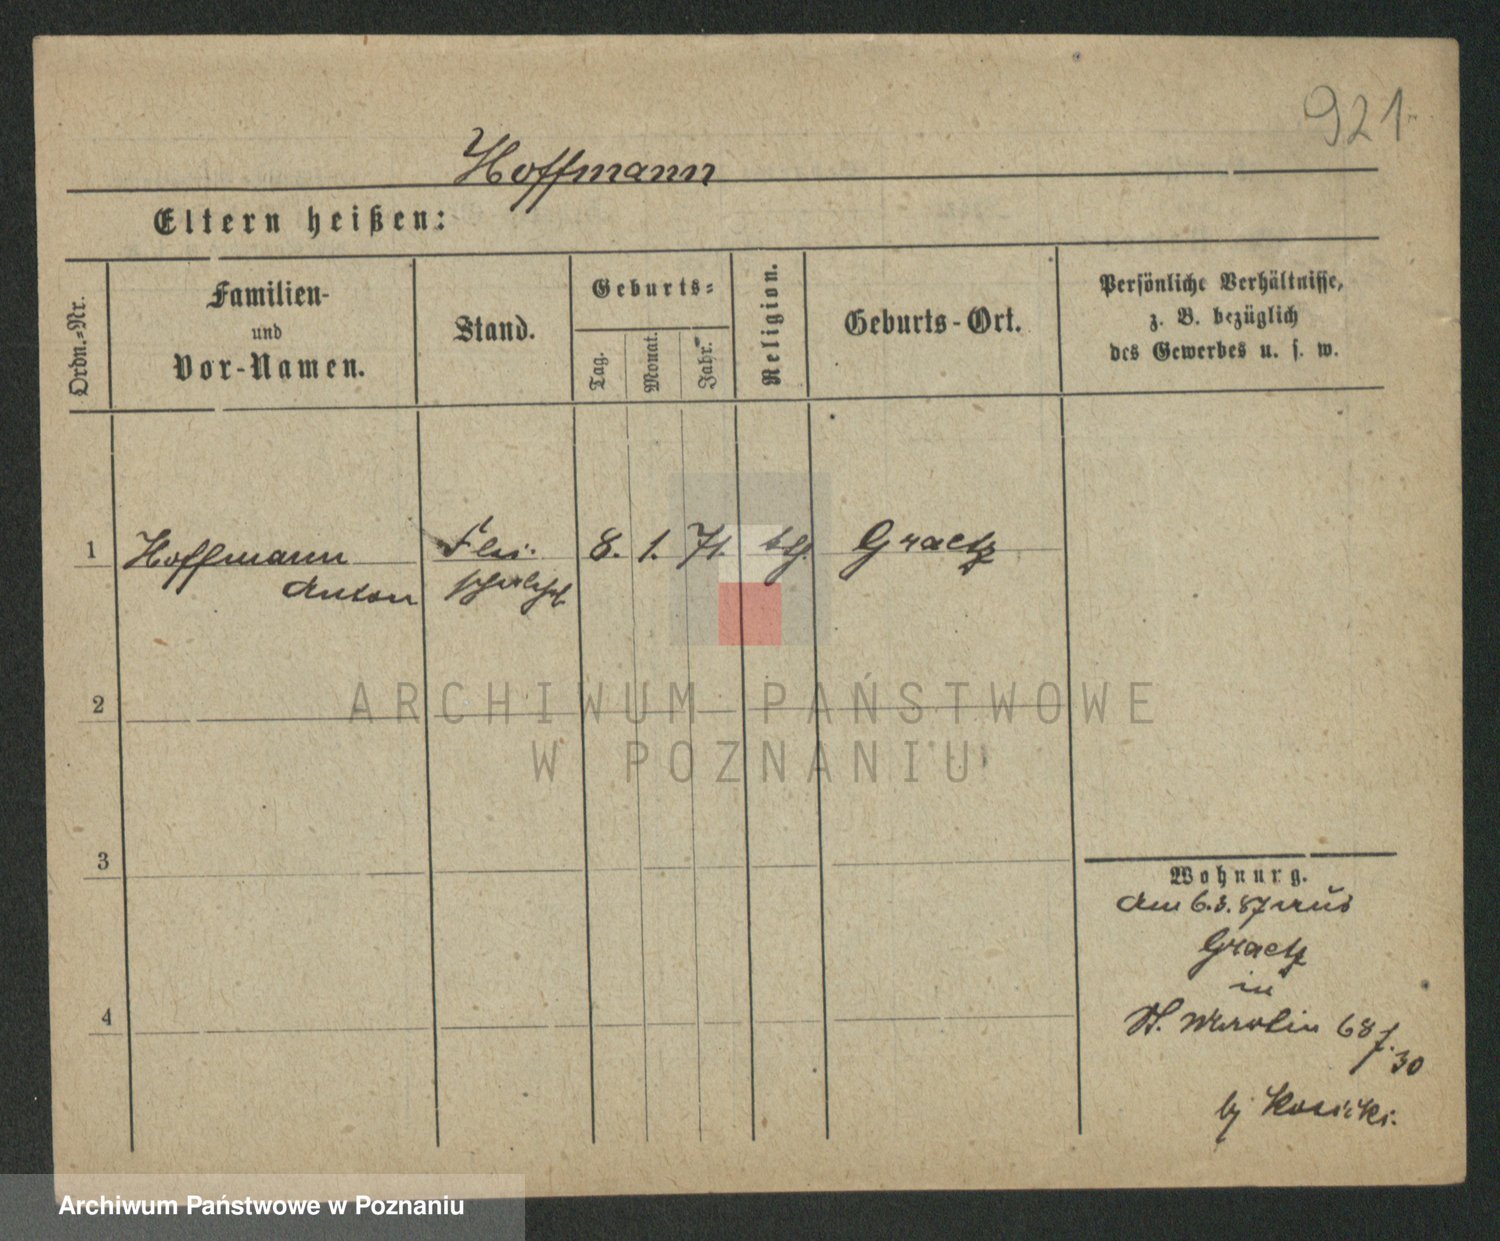 921
Hoffmann
Eltern heißen:
Ordn.-Nr.
Familien-
und
Vor-Namen.
Stand.
Geburts-
Tag.
Monat.
Jahr.
Religion.
Geburts-Ort.
Persönliche Verhältnisse,
z. B. bezüglich
des Gewerbes u. s. w.
1 Hoffmann Flei- 8. 1. 71. Graetz
Anton
2
ARCHIWUM PAŃSTWOWE
W POZNANIU
3
Wohnung.
Am 6.3.87 aus
Graetz
in
4
St. Martin 68
30
by Kosicki.
Archiwum Państwowe w Poznaniu